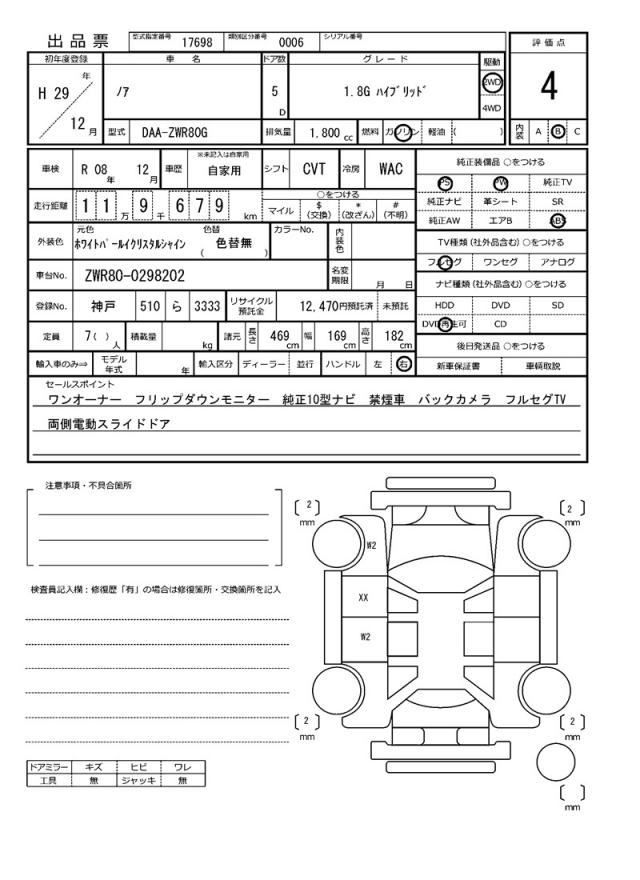 出品票 型式指定番号 17698 類別区分番号 0006 シリアル番号
評価点
4
内装 A B C
初年度登録 車名 ドア数 グレード 駆動
H 29 年 12 月 ノア 5 D 1.8G ハイブリッド 2WD 4WD
型式 DAA-ZWR80G 排気量 1.800 cc 燃料 ガソリン 軽油 ( )
車検 R 08 年 12 月 車歴 ※未記入は自家用 自家用 シフト CVT 冷房 WAC
走行距離 1 1 万 9 千 6 7 9 km ○をつける マイル $ (交換) * (改ざん) # (不明)
外装色 元色 ホワイトパールイクリスタルシャイン 色替 ( 色替無 ) カラーNo. 内装色
車台No. ZWR80-0298202 名変期限 月 日
登録No. 神戸 510 ら 3333 リサイクル預託金 12,470円預託済 未預託
定員 7( )人 積載量 kg 諸元 長さ 469 cm 幅 169 cm 高さ 182 cm
輸入車のみ⇒ モデル年式 年 輸入区分 ディーラー 並行 ハンドル 左 右
純正装備品 ○をつける
PS PW 純正TV
純正ナビ 革シート SR
純正AW エアB ABS
TV種類(社外品含む)○をつける
フルセグ ワンセグ アナログ
ナビ種類(社外品含む)○をつける
HDD DVD SD
DVD再生可 CD
後日発送品 ○をつける
新車保証書 車輌取説
セールスポイント
ワンオーナー フリップダウンモニター 純正10型ナビ 禁煙車 バックカメラ フルセグTV
両側電動スライドドア
注意事項・不具合箇所
検査員記入欄:修復歴「有」の場合は修復箇所・交換箇所を記入
ドアミラー キズ ヒビ ワレ
工具 無 ジャッキ 無
[ 2 ] mm
[ 2 ] mm
W2
XX
W2
[ 2 ] mm
[ 2 ] mm
[ ] mm